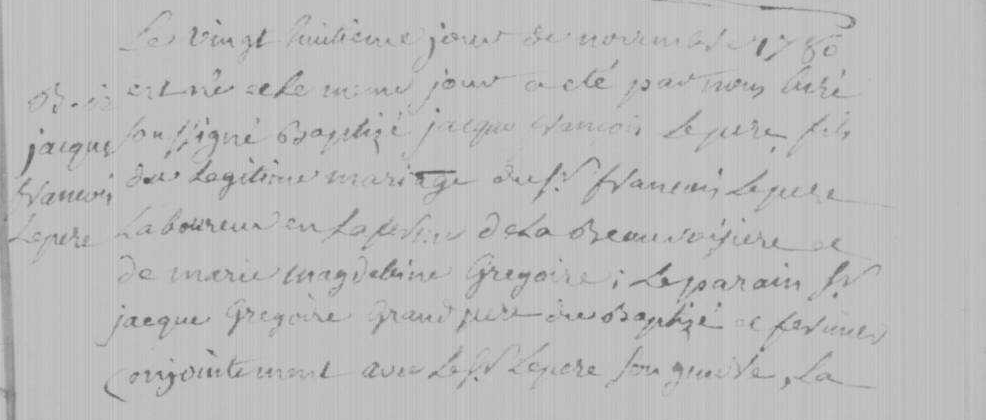 Le vingt huitieme jour de novembre 1780
B. 12 est né et le meme jour a eté par nous curé
jacque soussigné Baptizé jacque francois Lepere fils
francois du Legitime mariage du Sr francois Lepere
Lepere Laboureur en La ferme de La Beauvoisiere et
de marie magdeleine Gregoire ; Le parain Sr
jacque Gregoire Grand pere du Baptizé et fermier
conjointement avec Le Sr Lepere son gendre, La